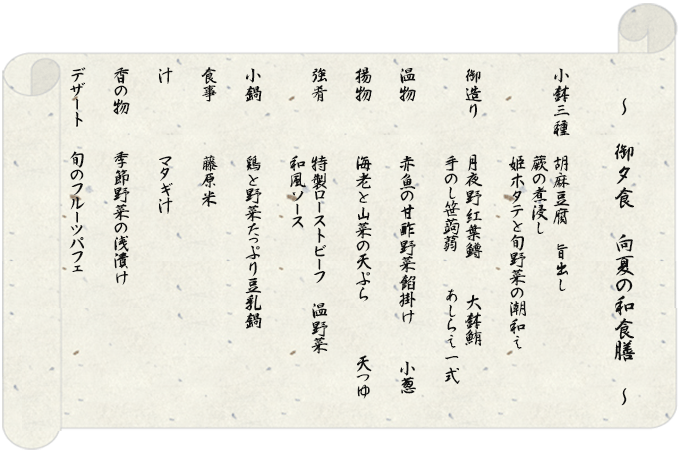 ～ 御夕食 向夏の和食膳 ～
小鉢三種 胡麻豆腐 旨出し
蕨の煮浸し
姫ホタテと旬野菜の潮和え
御造り 月夜野紅葉鱒 大鉢鮪
手のし笹蒟蒻 あしらえ一式
温物 赤魚の甘酢野菜餡掛け 小葱
揚物 海老と山菜の天ぷら 天つゆ
強肴 特製ローストビーフ 温野菜
和風ソース
小鍋 鶏と野菜たっぷり豆乳鍋
食事 藤原米
汁 マタギ汁
香の物 季節野菜の浅漬け
デザート 旬のフルーツパフェ